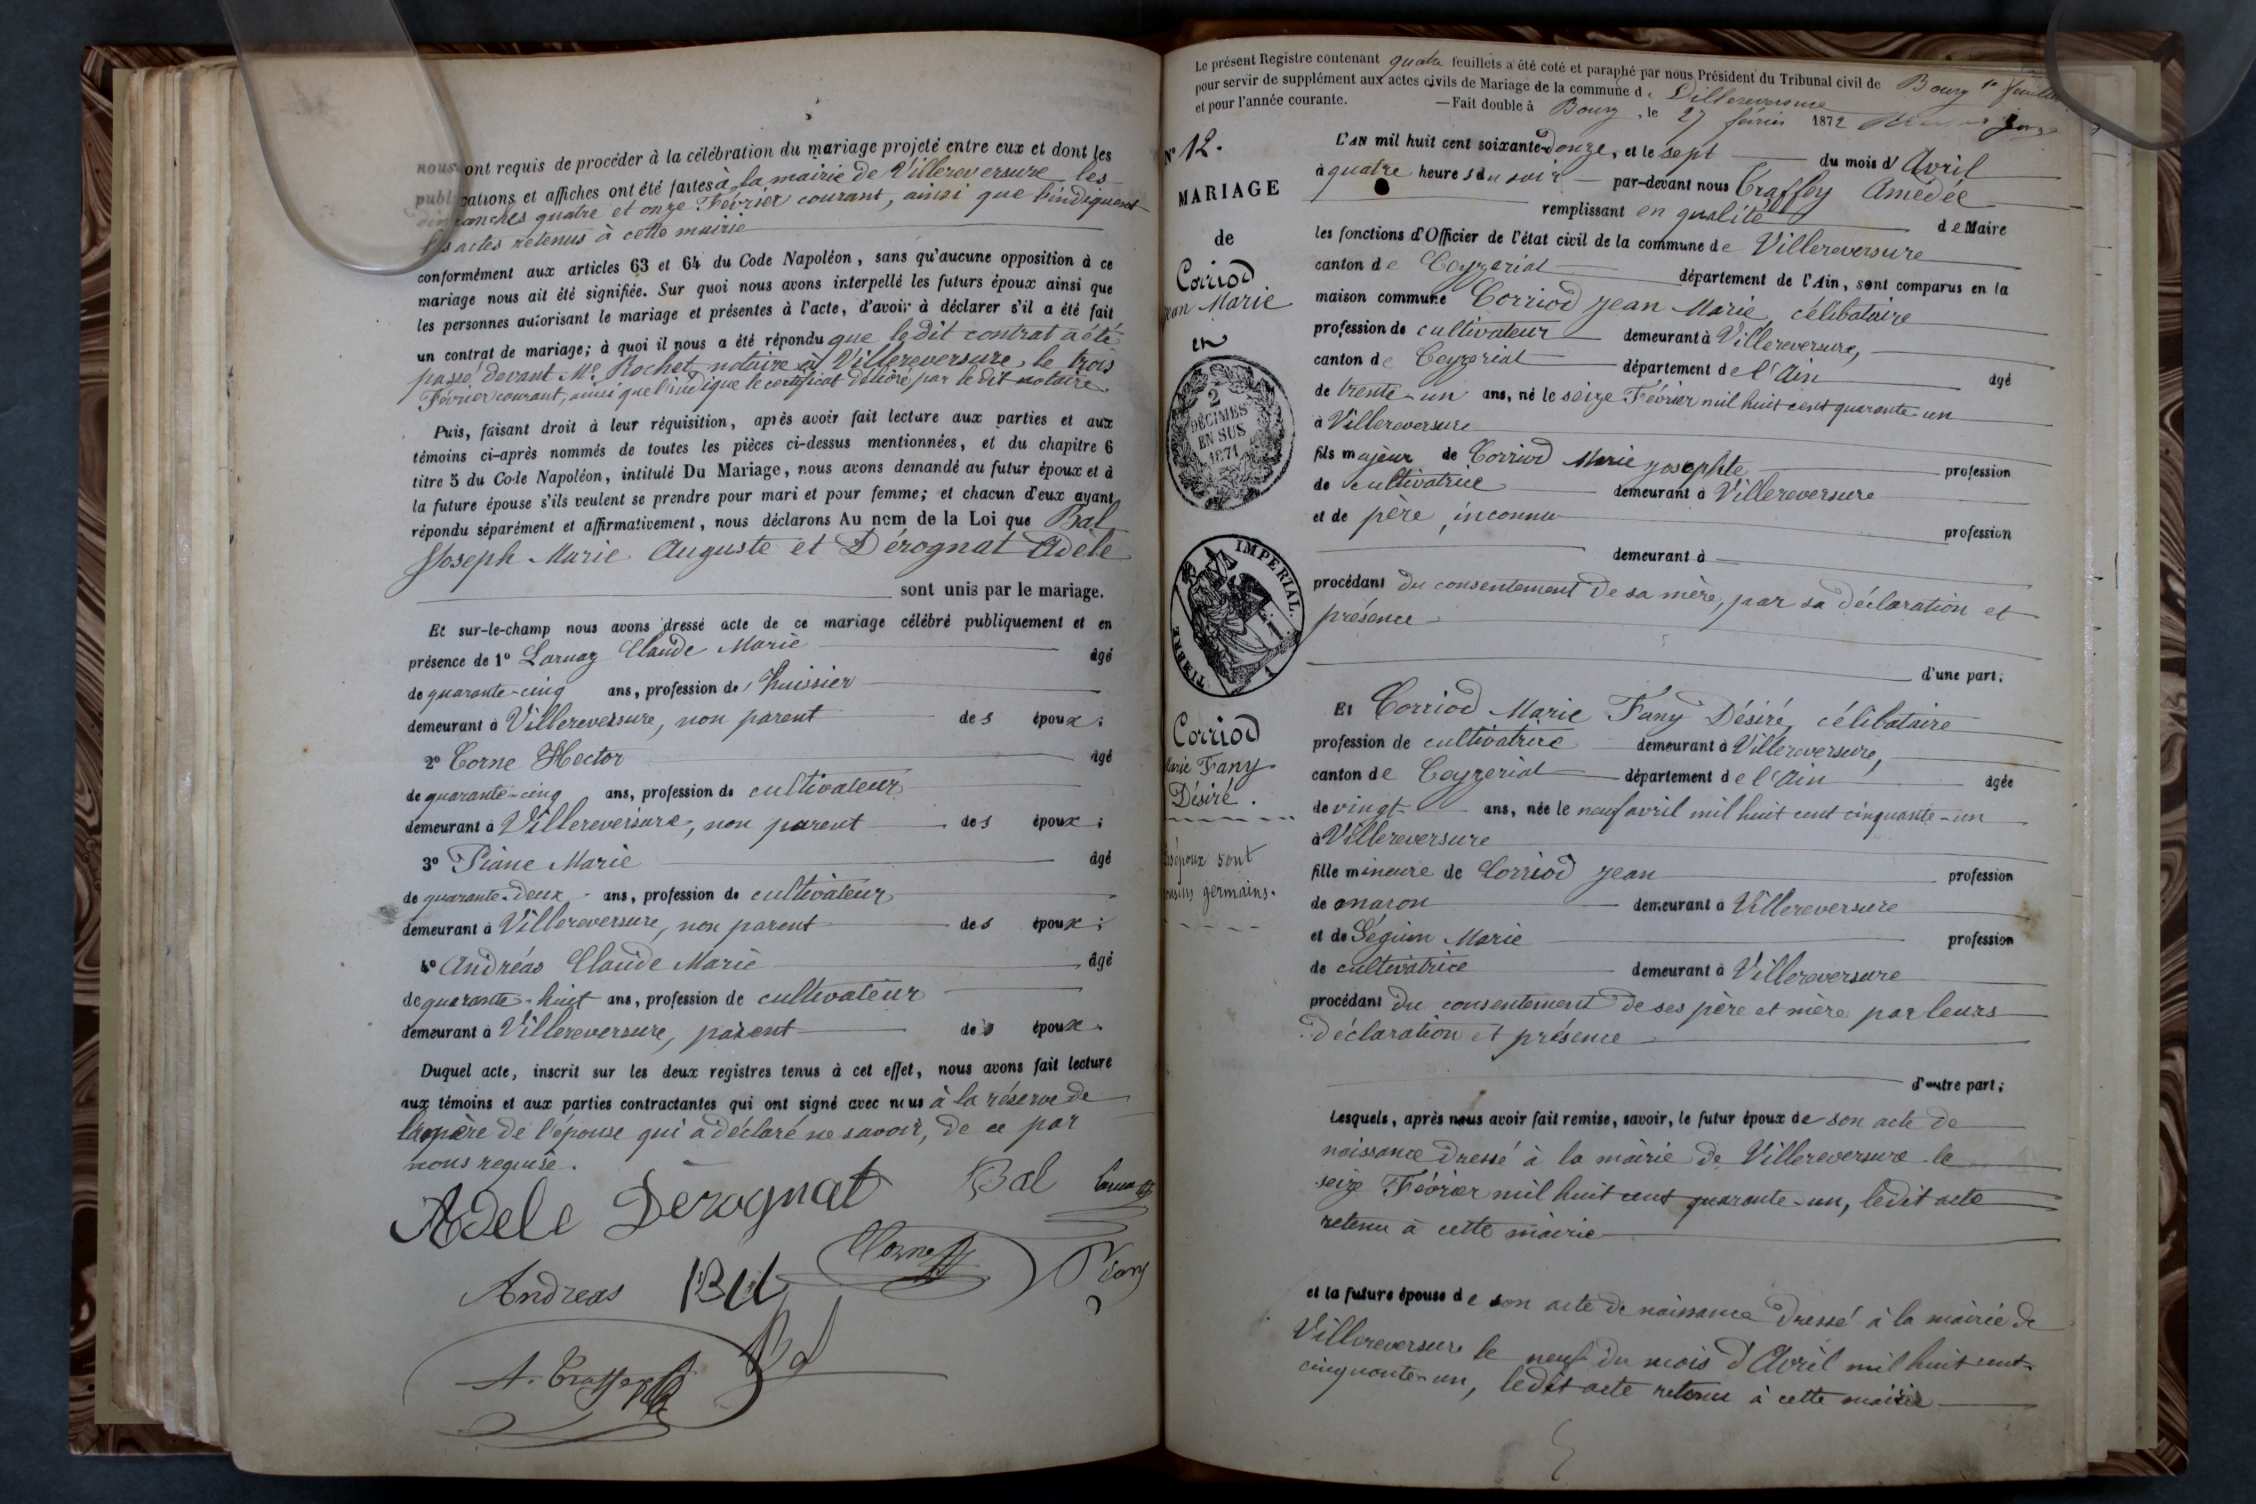 nous ont requis de procéder à la célébration du mariage projeté entre eux et dont les
publications et affiches ont été faites à la mairie de Villereversure les
dimanches quatre et onze Février courant, ainsi que l'indiquent
les actes retenus à cette mairie
conformément aux articles 63 et 64 du Code Napoléon, sans qu'aucune opposition à ce
mariage nous ait été signifiée. Sur quoi nous avons interpellé les futurs époux ainsi que
les personnes autorisant le mariage et présentes à l'acte, d'avoir à déclarer s'il a été fait
un contrat de mariage; à quoi il nous a été répondu que le dit contrat a été
passé devant Me Rochet notaire à Villereversure, le trois
Février courant, ainsi que l'indique le certificat délivré par le dit notaire.
Puis, faisant droit à leur réquisition, après avoir fait lecture aux parties et aux
témoins ci-après nommés de toutes les pièces ci-dessus mentionnées, et du chapitre 6
titre 5 du Code Napoléon, intitulé Du Mariage, nous avons demandé au futur époux et à
la future épouse s'ils veulent se prendre pour mari et pour femme; et chacun d'eux ayant
répondu séparément et affirmativement, nous déclarons Au nom de la Loi que Bal
Joseph Marie Auguste et Dérognat Adèle
sont unis par le mariage.
Et sur-le-champ nous avons dressé acte de ce mariage célébré publiquement et en
présence de 1º Larnaz Claude Marie âgé
de quarante-cinq ans, profession de huissier
demeurant à Villereversure, non parent des époux;
2º Corne Hector âgé
de quarante-cinq ans, profession de cultivateur
demeurant à Villereversure, non parent des époux;
3º Piane Marie âgé
de quarante-deux ans, profession de cultivateur
demeurant à Villereversure, non parent des époux;
4º Andréas Claude Marie âgé
de quarante-huit ans, profession de cultivateur
demeurant à Villereversure, parent des époux.
Duquel acte, inscrit sur les deux registres tenus à cet effet, nous avons fait lecture
aux témoins et aux parties contractantes qui ont signé avec nous à la réserve de
la mère de l'épouse qui a déclaré ne savoir, de ce par
nous requise.
Adele Dérognat Bal Larnaz
Andreas Bal Corne Piane
A. Traffey Bal
Le présent Registre contenant quatre feuillets a été coté et paraphé par nous Président du Tribunal civil de Bourg
pour servir de supplément aux actes civils de Mariage de la commune de Villereversure
et pour l'année courante. — Fait double à Bourg, le 27 février 1872
Nº 12.
MARIAGE
de
Corriod
Jean Marie
et
2
DÉCIMES
EN SUS
1871
TIMBRE IMPERIAL
Corriod
Marie Fany
Désiré.
Les époux sont
cousins germains.
L'AN mil huit cent soixante-douze, et le sept du mois d'Avril
à quatre heures du soir par-devant nous Traffey Amédée
remplissant en qualité de Maire
les fonctions d'Officier de l'état civil de la commune de Villereversure
canton de Ceyzeriat département de l'Ain, sont comparus en la
maison commune Corriod Jean Marie, célibataire
profession de cultivateur demeurant à Villereversure,
canton de Ceyzeriat département de l'Ain âgé
de trente-un ans, né le seize Février mil huit cent quarante-un
à Villereversure
fils majeur de Corriod Marie Josephte profession
de cultivatrice demeurant à Villereversure
et de père inconnu profession
demeurant à
procédant du consentement de sa mère, par sa déclaration et
présence
d'une part;
Et Corriod Marie Fany Désiré, célibataire
profession de cultivatrice demeurant à Villereversure,
canton de Ceyzeriat département de l'Ain âgée
de vingt ans, née le neuf avril mil huit cent cinquante-un
à Villereversure
fille mineure de Corriod Jean profession
de maçon demeurant à Villereversure
et de Séguin Marie profession
de cultivatrice demeurant à Villereversure
procédant du consentement de ses père et mère par leurs
déclaration et présence
d'autre part;
Lesquels, après nous avoir fait remise, savoir, le futur époux de son acte de
naissance dressé à la mairie de Villereversure le
seize Février mil huit cent quarante-un, ledit acte
retenu à cette mairie
et la future épouse de son acte de naissance dressé à la mairie de
Villereversure le neuf du mois d'Avril mil huit cent
cinquante-un, ledit acte retenu à cette mairie